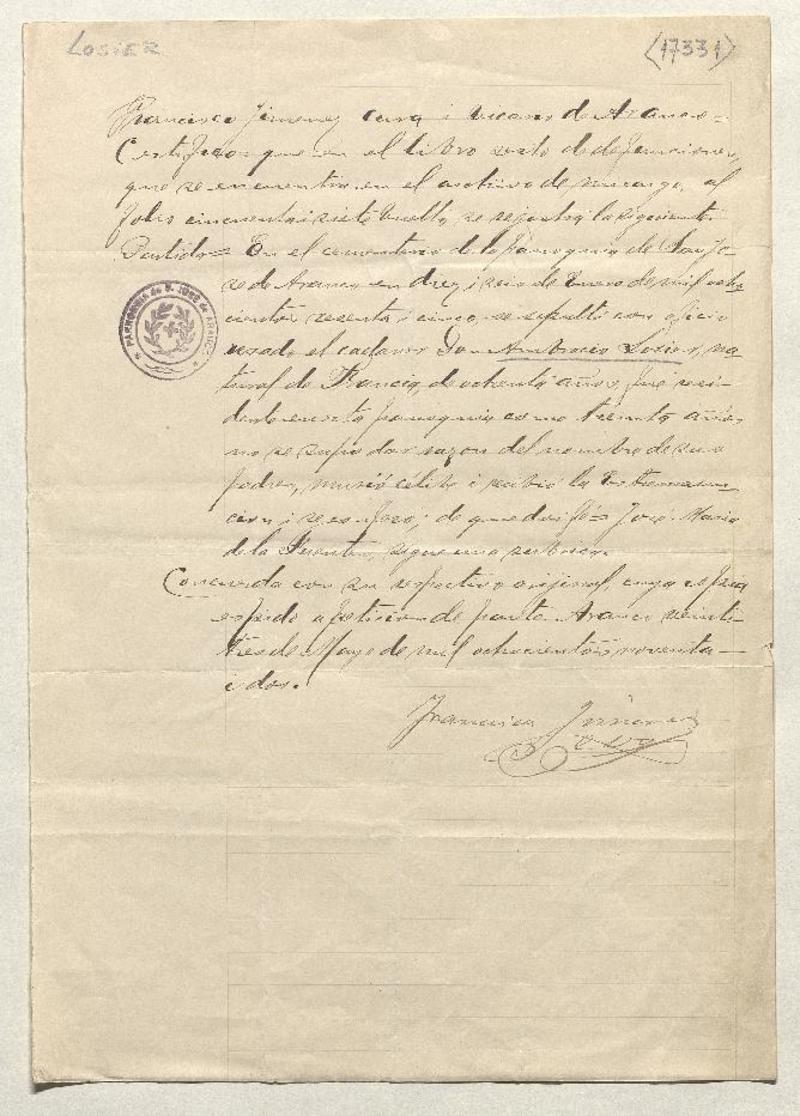 LOSIER
(17331)
Francisco Jimenez cura i Vicario de Arauco =
Certifico = que en el libro sesto de defunciones,
que se encuentra en el archivo de mi cargo, al
folio cincuenta i siete vuelta, se rejistra la siguiente
Partida = En el cementerio de la parroquia de San Jo-
se de Arauco en diez i seis de Enero de mil ocho
cientos sesenta i cinco se sepultó con oficio
resado el cadaver Don Ambrocio Losier, na
tural de Francia, de ochenta años, fué resi-
dente en esta parroquia como treinta años,
no se supo dar razon del nombre de sus
padres, murió célibe i recibió la Estremaun-
cion i se confesó; de que doi fé = José Maria
de la Fuente, sigue una rubrica.
Concuerda con su respectivo orijinal, cuya copia
espido a peticion de parte. Arauco veinti
tres de Mayo de mil ochocientos noventa
i dos.
Francisco Jimenez
PARROQUIA de S. JOSÉ de ARAUCO